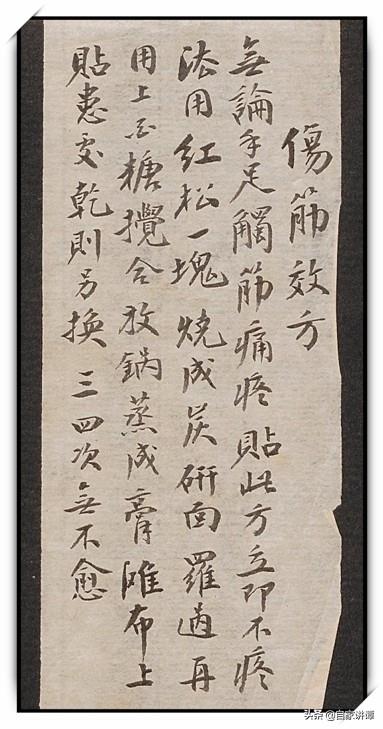 傷筋效方
無論手足觸筋痛疼貼此方立即不疼
法用紅松一塊燒成炭研面羅過再
用上白糖攪合放鍋蒸成膏布上
貼患處乾則另換三四次無不愈
头条 @自家讲谭